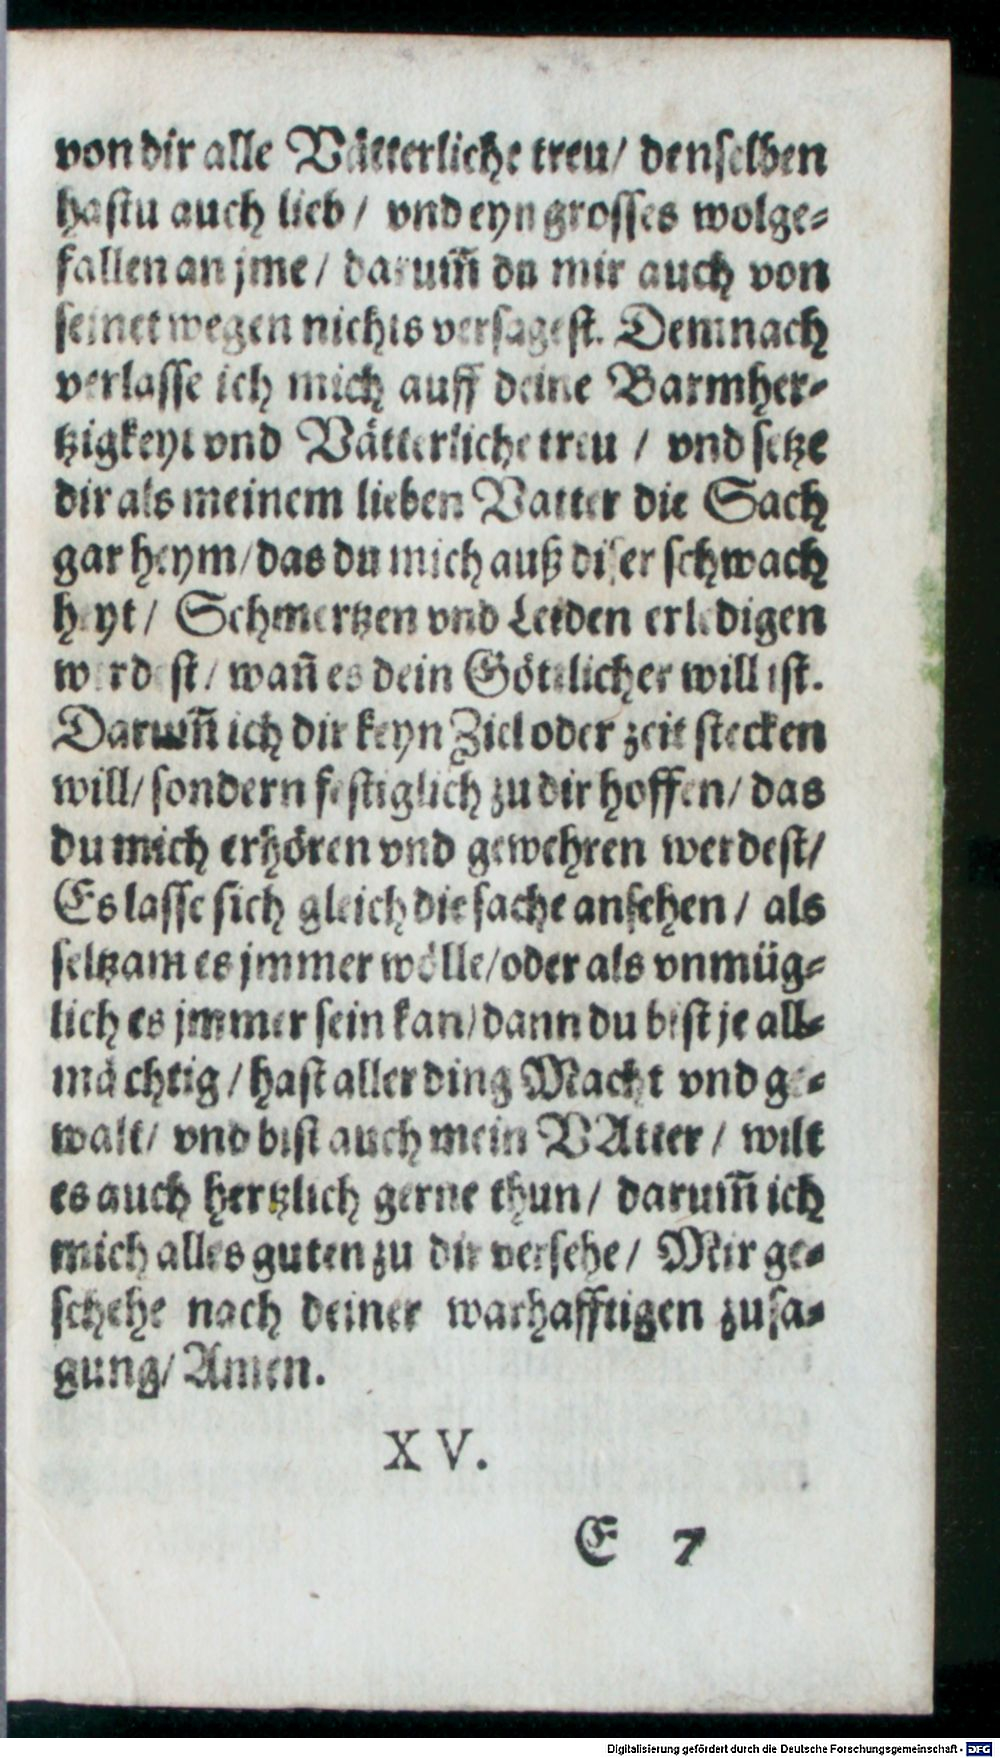 von dir alle Vätterliche treu/ denselben
hastu auch lieb/ vnd eyn grosses wolge-
fallen an jme/ darum̃ du mir auch von
seinet wegen nichts versagest. Demnach
verlasse ich mich auff deine Barmher-
tzigkeyt vnd Vätterliche treu/ vnd setze
dir als meinem lieben Vatter die Sach
gar heym/ das du mich auß diser schwach
heyt/ Schmertzen vnd Leiden erledigen
werdest/ wañ es dein Göttlicher will ist.
Darum̃ ich dir keyn Ziel oder zeit stecken
will/ sondern festiglich zu dir hoffen/ das
du mich erhören vnd gewehren werdest/
Es lasse sich gleich die sache ansehen/ als
seltzam es jmmer wölle/ oder als vnmüg-
lich es jmmer sein kan/ dann du bist je all-
mächtig/ hast aller ding Macht vnd ge-
walt/ vnd bist auch mein VAtter/ wilt
es auch hertzlich gerne thun/ darum̃ ich
mich alles guten zu dir versehe/ Mir ge-
schehe nach deiner warhafftigen zusa-
gung/ Amen.
XV.
E 7
Digitalisierung gefördert durch die Deutsche Forschungsgemeinschaft - DFG